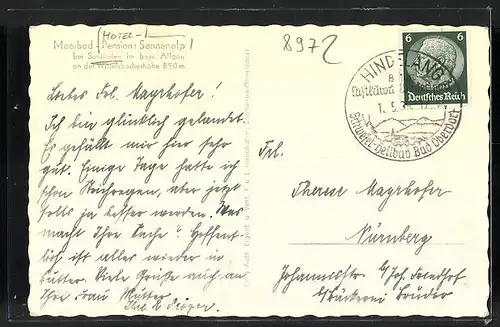 HOTEL-
Moorbad - Pension: Sonnenalp
bei Sonthofen im bayr. Allgäu
an der Wittelsbacherhöhe 890 m
8972
6 6
Deutsches Reich
HINDELANG
Luftkurort
1. 5. 3
Schwefel-Heilbad Bad Oberdorf
Liebes Frl. Mayrhofer!
Ich bin glücklich gelandet.
Es gefällt mir hier sehr
gut. Einige Tage hatte ich
schon Regen, aber jetzt
solls ja besser werden. Was
macht Ihre Sache? Hoffent-
lich ist alles wieder in
Butter. Viele Grüße auch an
Ihre Frau Mutter
Ihre
Frl.
Therese Mayrhofer
Nürnberg
Johannisstr. b/Joh. Friedhof
b/Bäckerei